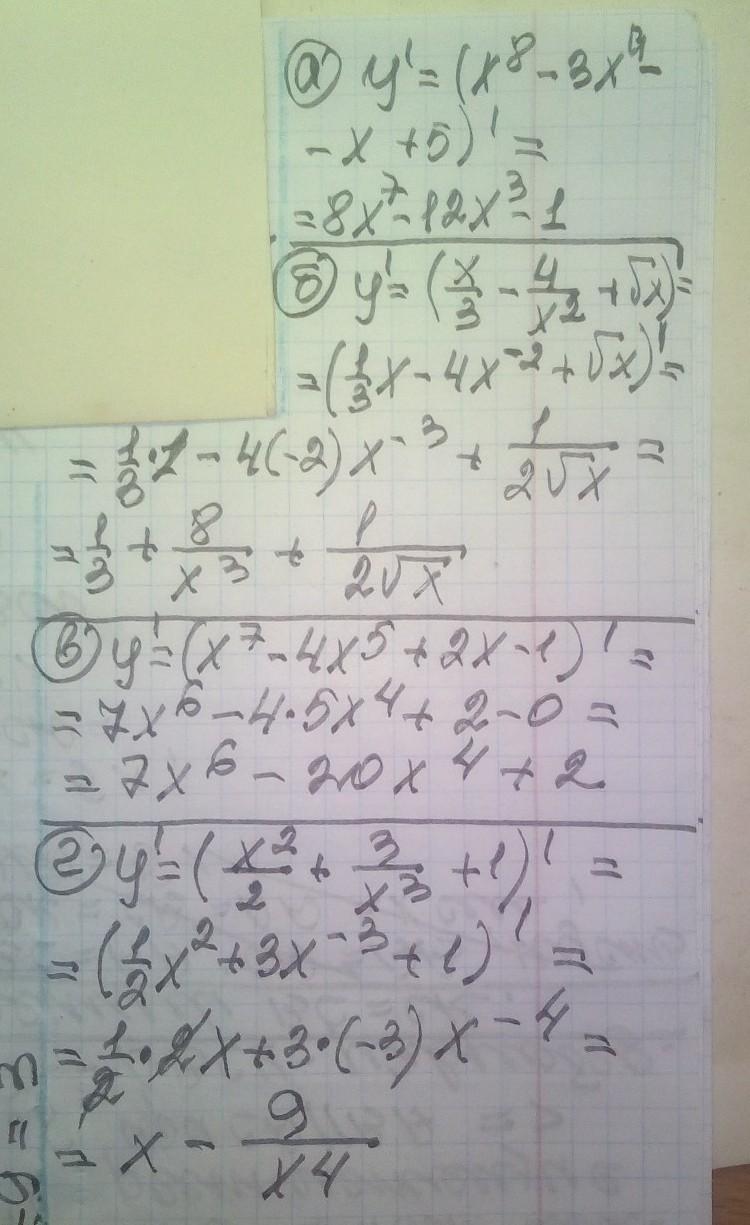 а) y' = (x⁸ - 3x⁴ -
- x + 5)' =
= 8x⁷ - 12x³ - 1
б) y' = (x/3 - 4/x² + √x)' =
= (1/3 x - 4x⁻² + √x)' =
= 1/3 · 1 - 4(-2)x⁻³ + 1/(2√x) =
= 1/3 + 8/x³ + 1/(2√x)
в) y' = (x⁷ - 4x⁵ + 2x - 1)' =
= 7x⁶ - 4·5x⁴ + 2 - 0 =
= 7x⁶ - 20x⁴ + 2
г) y' = (x²/2 + 3/x³ + 1)' =
= (1/2 x² + 3x⁻³ + 1)' =
= 1/2 · 2x + 3·(-3)x⁻⁴ =
= x - 9/x⁴
y = 3